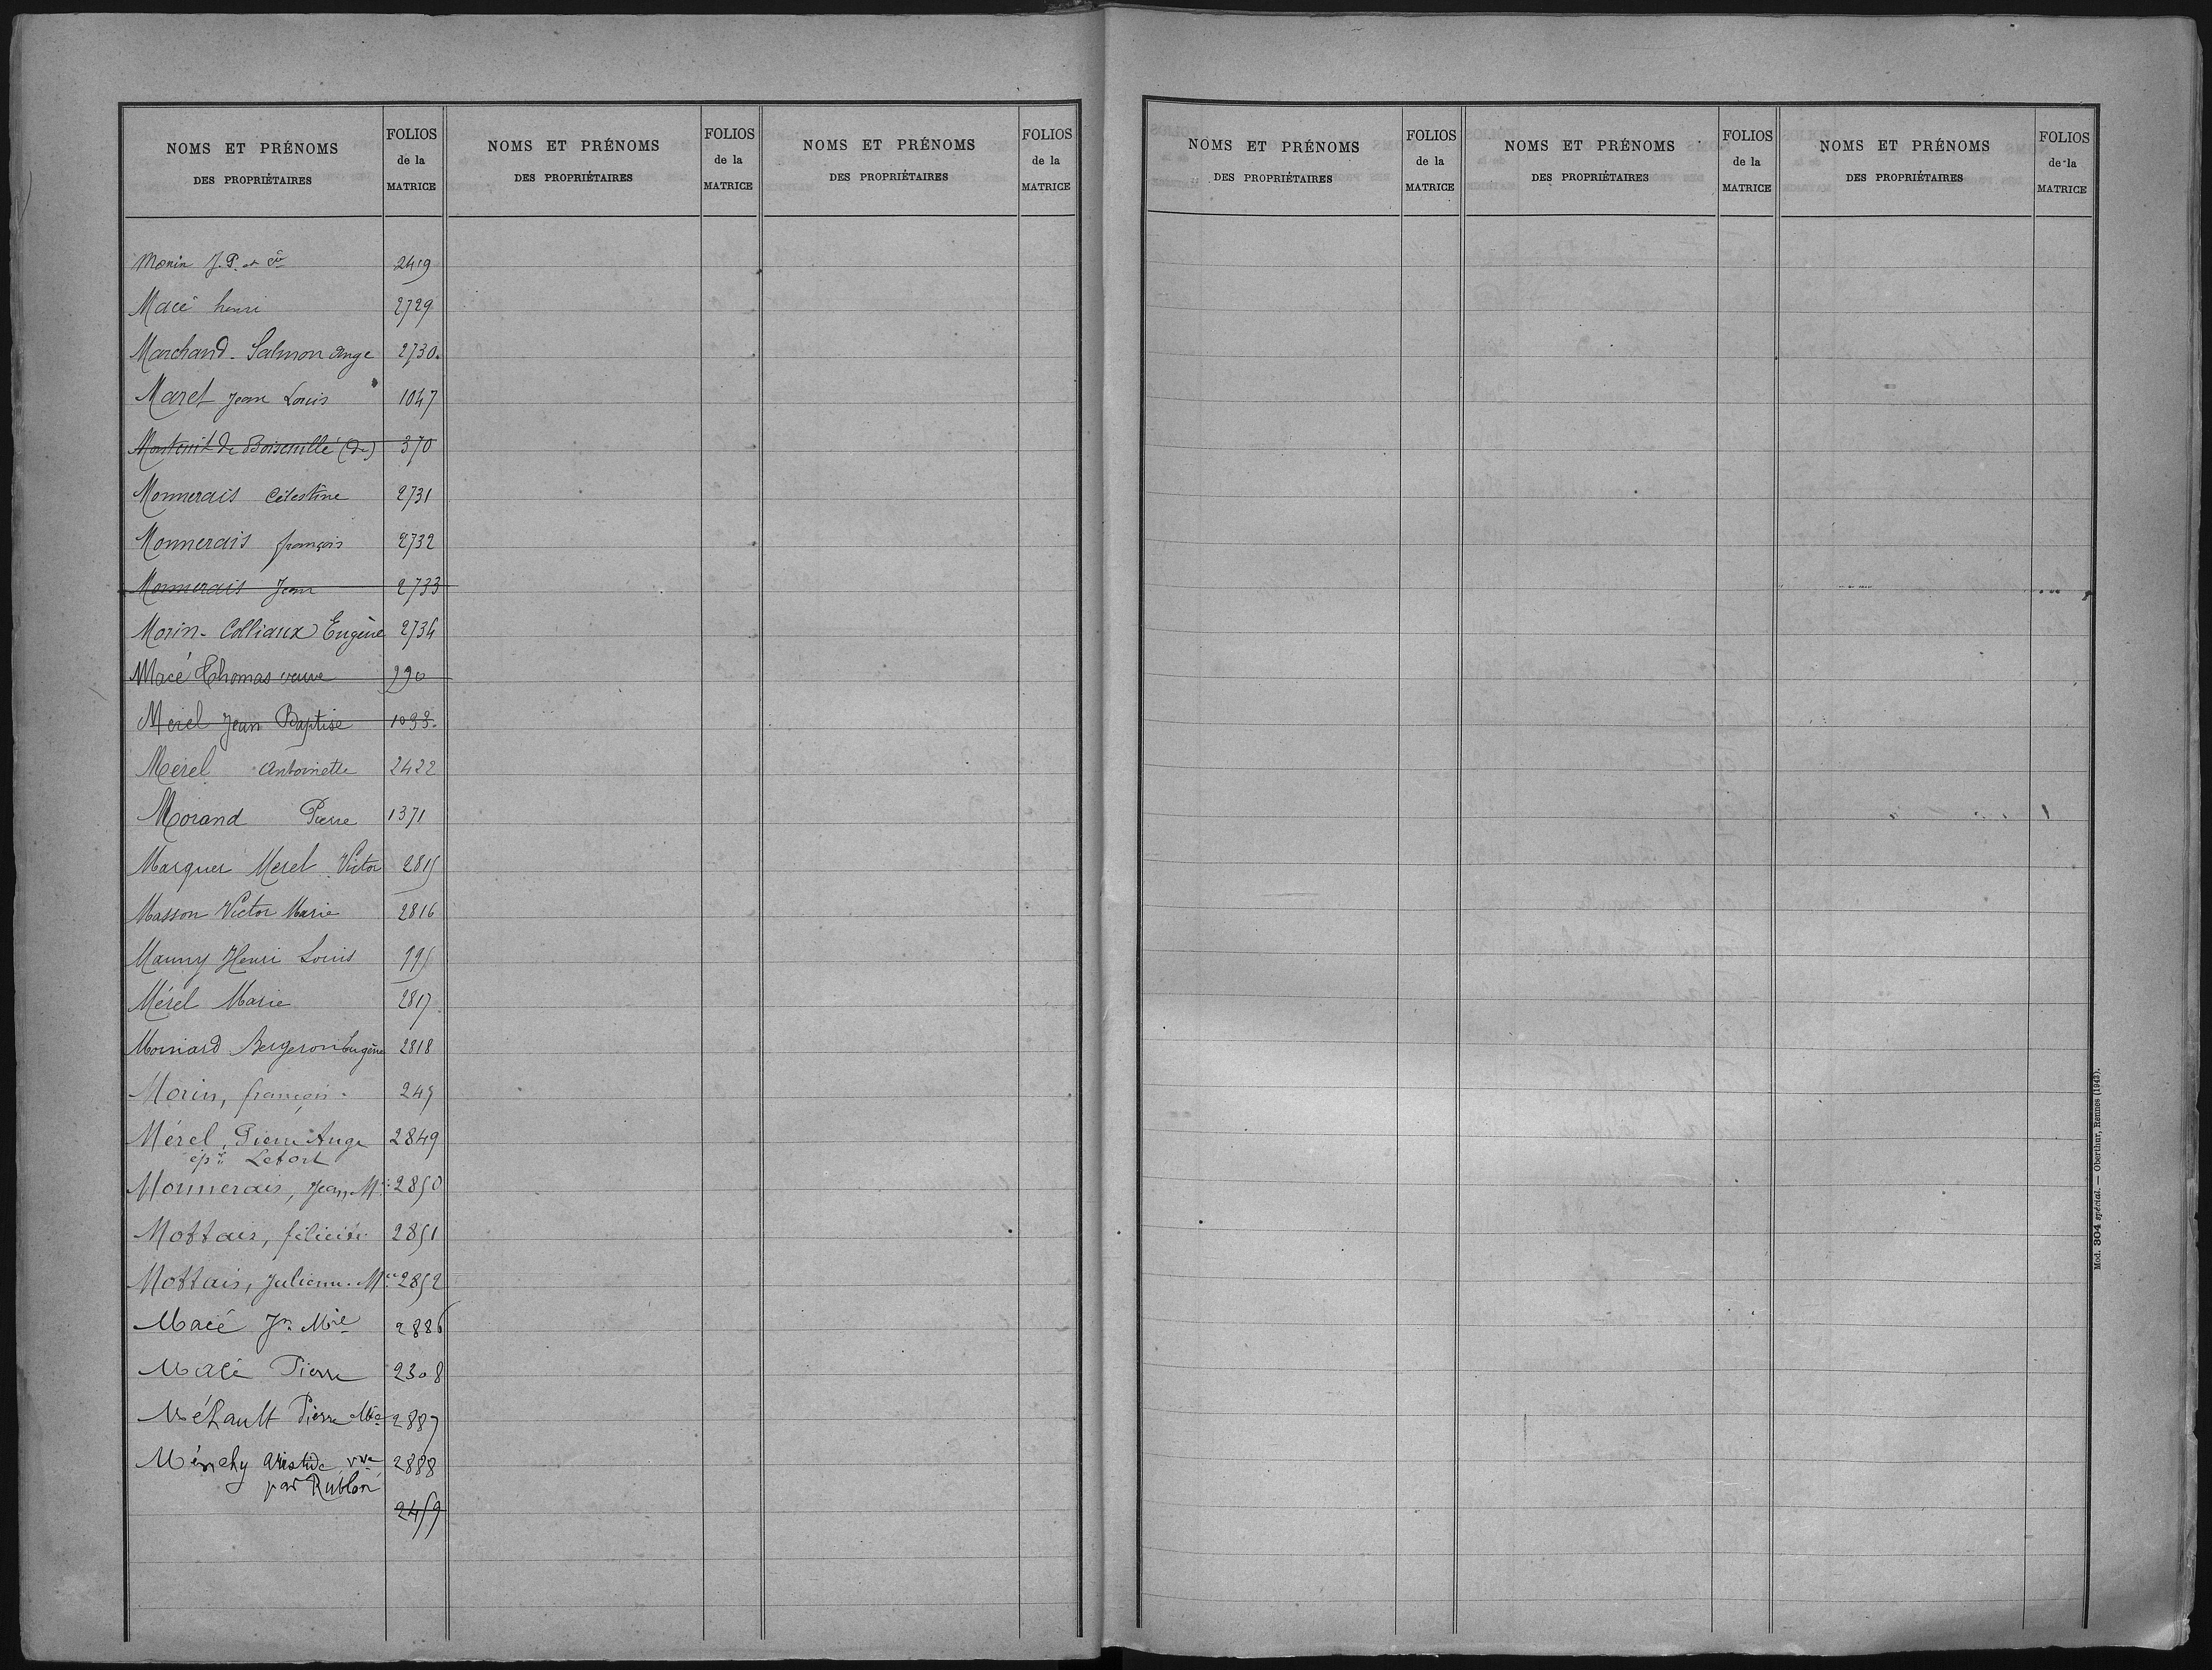 NOMS ET PRÉNOMS
DES PROPRIÉTAIRES
FOLIOS
de la
MATRICE
NOMS ET PRÉNOMS
DES PROPRIÉTAIRES
FOLIOS
de la
MATRICE
NOMS ET PRÉNOMS
DES PROPRIÉTAIRES
FOLIOS
de la
MATRICE
Morin J. P. et 2419
Macé henri 2729
Marchand-Salmon Ange 2730
Maret Jean Louis 1047
de (de) 370
Monnerais Célestine 2731
Monnerais françois 2732
Monnerais Jean 2733
Morin-Colliaux Eugène 2734
Macé Thomas veuve 990
Merel Jean Baptise 1093
Merel Antoinette 2422
Morand Pierre 1371
Marquer Merel Victor 2815
Masson Victor Marie 2816
Mauny Henri Louis 995
Mérel Marie 2817
Bergeron Eugène 2818
Morin, françois 245
Mérel, Pierre Ange 2849
ép. Lefort
Monnerais, Jean M. 2850
Mottais, félicité 2851
Mottais, Julienne M. 2852
Macé Jn Mie 2886
Macé Pierre 2308
Méhault Pierre Mie 2887
Ménchy Aristide vve 2888
par Rublon
2459
NOMS ET PRÉNOMS
DES PROPRIÉTAIRES
FOLIOS
de la
MATRICE
NOMS ET PRÉNOMS
DES PROPRIÉTAIRES
FOLIOS
de la
MATRICE
NOMS ET PRÉNOMS
DES PROPRIÉTAIRES
FOLIOS
de la
MATRICE
Mod. 304 spécial. — Oberthur, Rennes (1943).